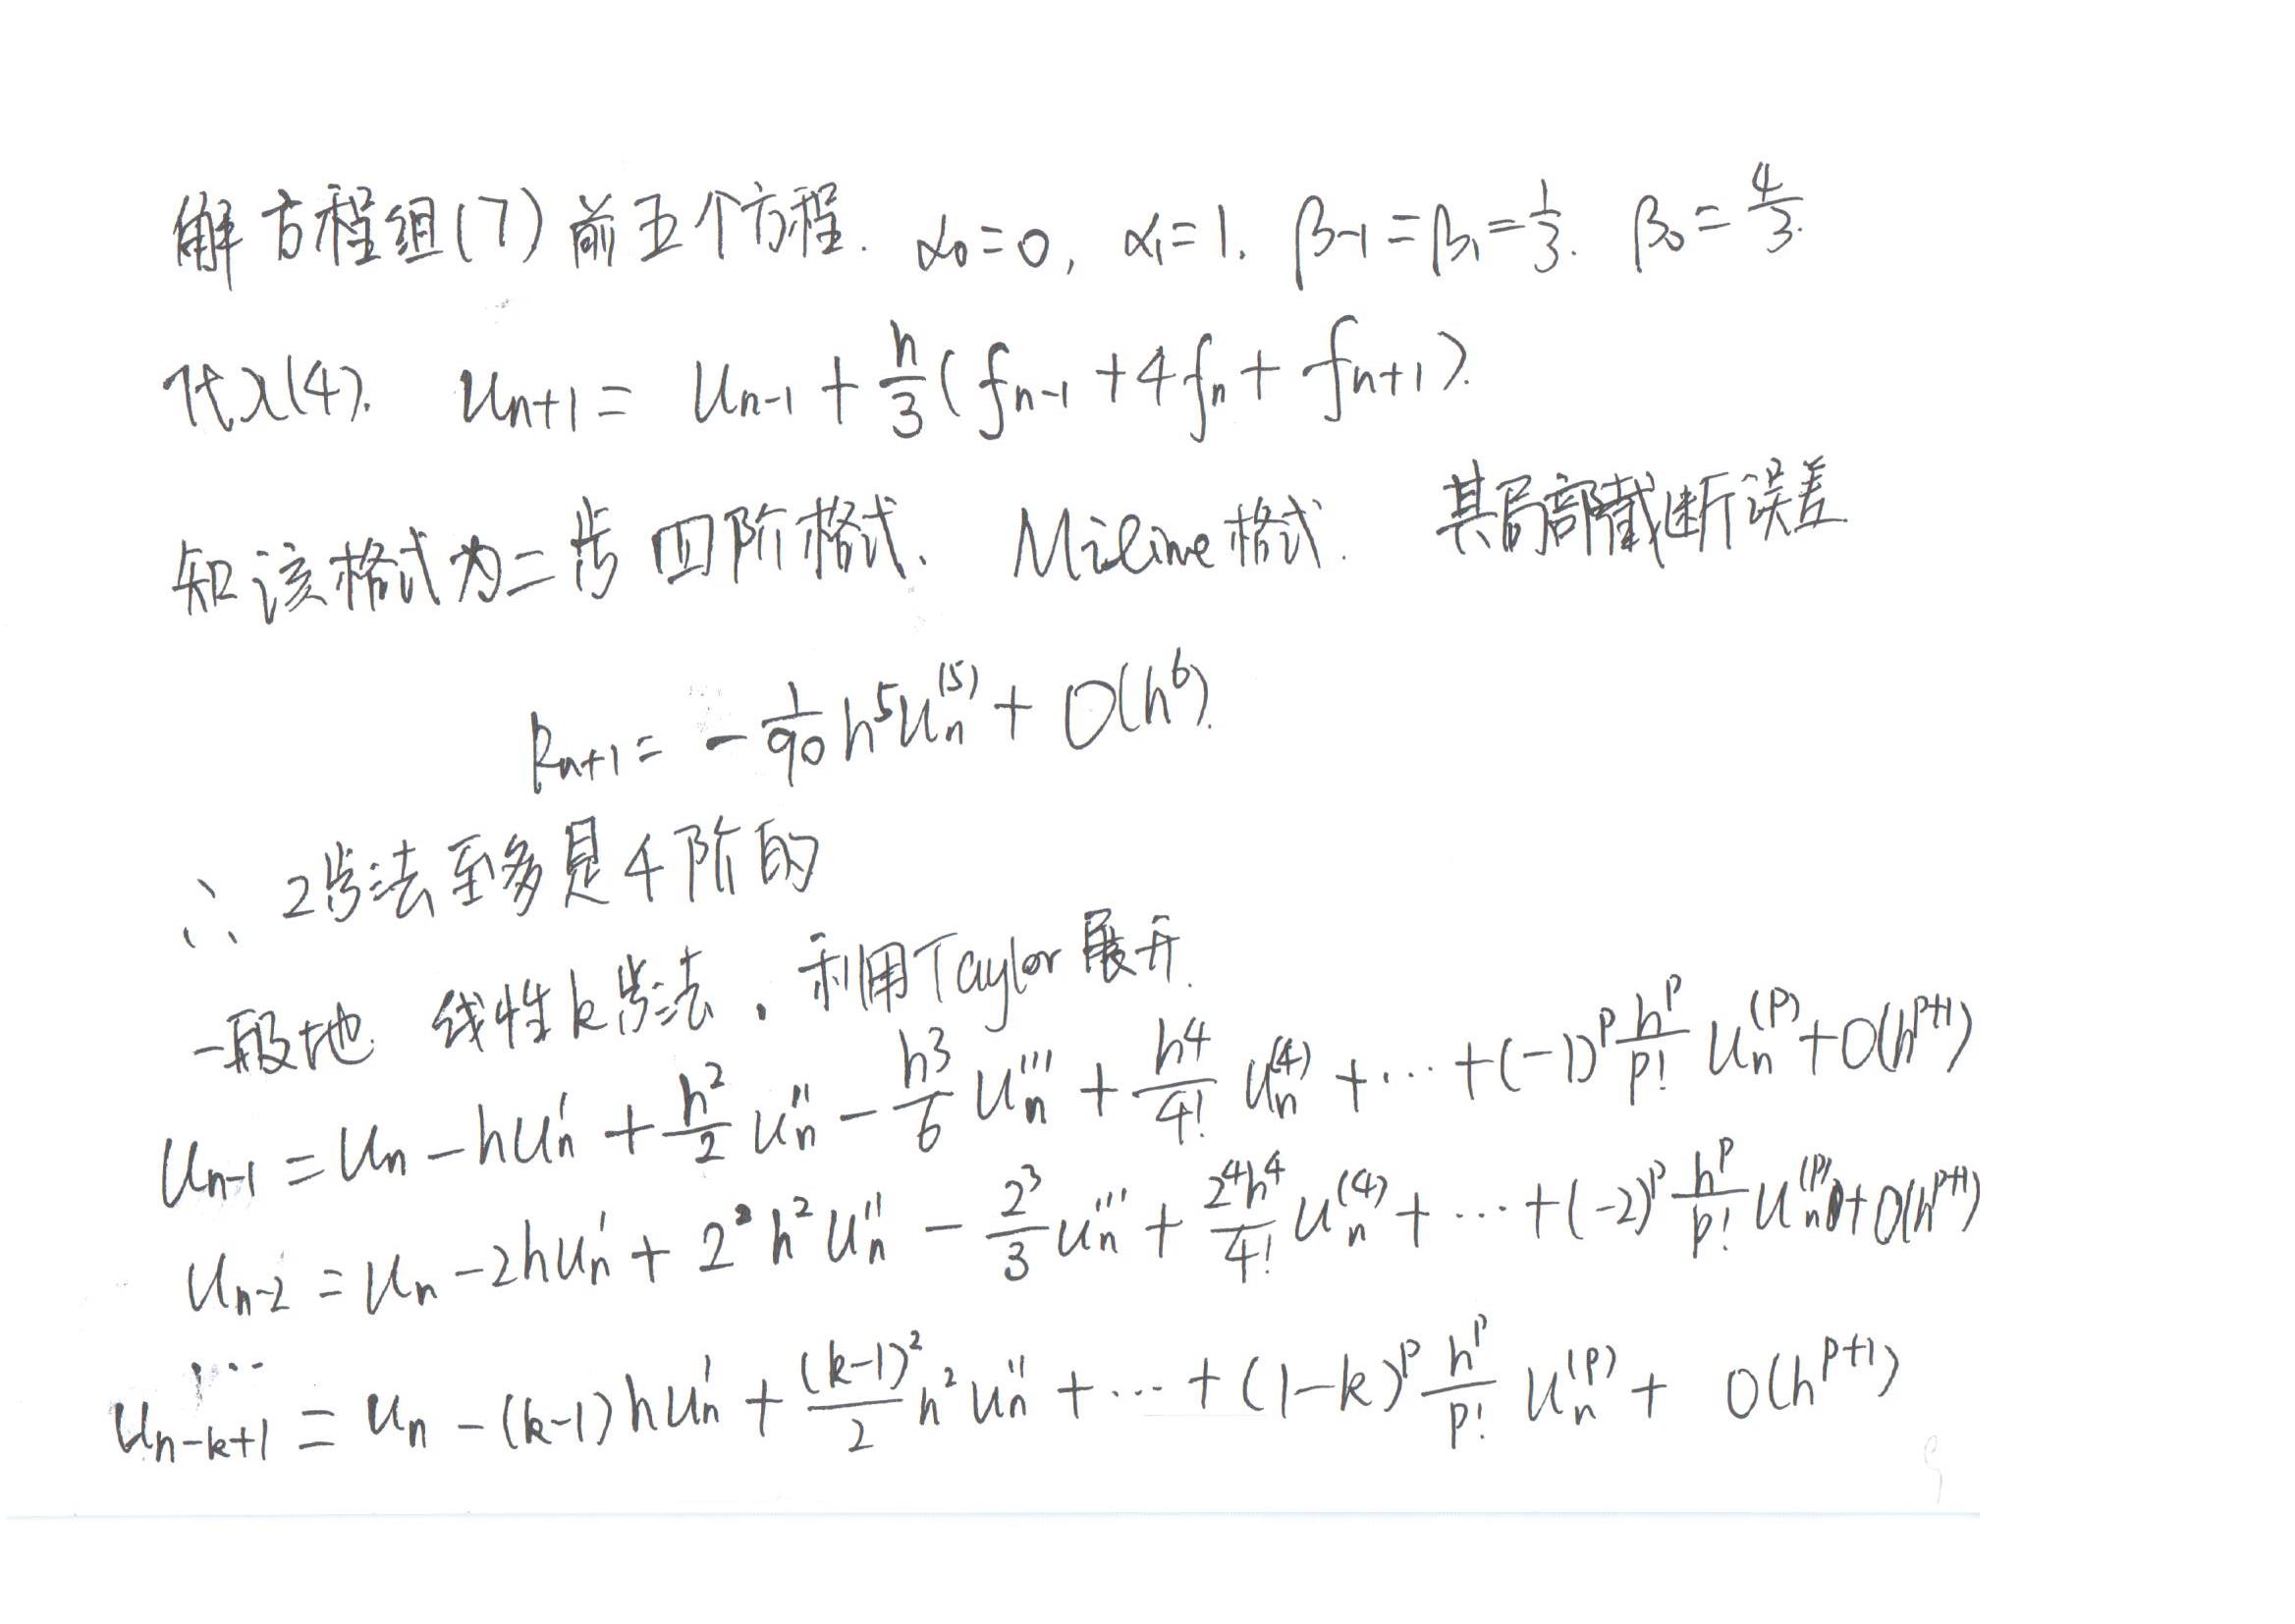 解方程组(7)前五个方程. α₀=0, α₁=1. β₋₁=β₁=1/3. β₀=4/3.
代入(4). Uₙ₊₁ = Uₙ₋₁ + h/3 (fₙ₋₁ + 4fₙ + fₙ₊₁).
知该格式为二步四阶格式、 Miline格式. 其局部截断误差
Rₙ₊₁ = -1/90 h⁵Uₙ⁽⁵⁾ + O(h⁶).
∴ 2步法至多是4阶的
一般地 线性k步法, 利用Taylor展开.
Uₙ₋₁ = Uₙ - hUₙ' + h²/2 Uₙ'' - h³/6 Uₙ''' + h⁴/4! Uₙ⁽⁴⁾ + ⋯ + (-1)ᵖ hᵖ/p! Uₙ⁽ᵖ⁾ + O(hᵖ⁺¹)
Uₙ₋₂ = Uₙ - 2hUₙ' + 2²h²Uₙ'' - 2³/3 Uₙ''' + 2⁴h⁴/4! Uₙ⁽⁴⁾ + ⋯ + (-2)ᵖ hᵖ/p! Uₙ⁽ᵖ⁾ + O(hᵖ⁺¹)
⋯
Uₙ₋ₖ₊₁ = Uₙ - (k-1)hUₙ' + (k-1)²/2 h²Uₙ'' + ⋯ + (1-k)ᵖ hᵖ/p! Uₙ⁽ᵖ⁾ + O(hᵖ⁺¹)